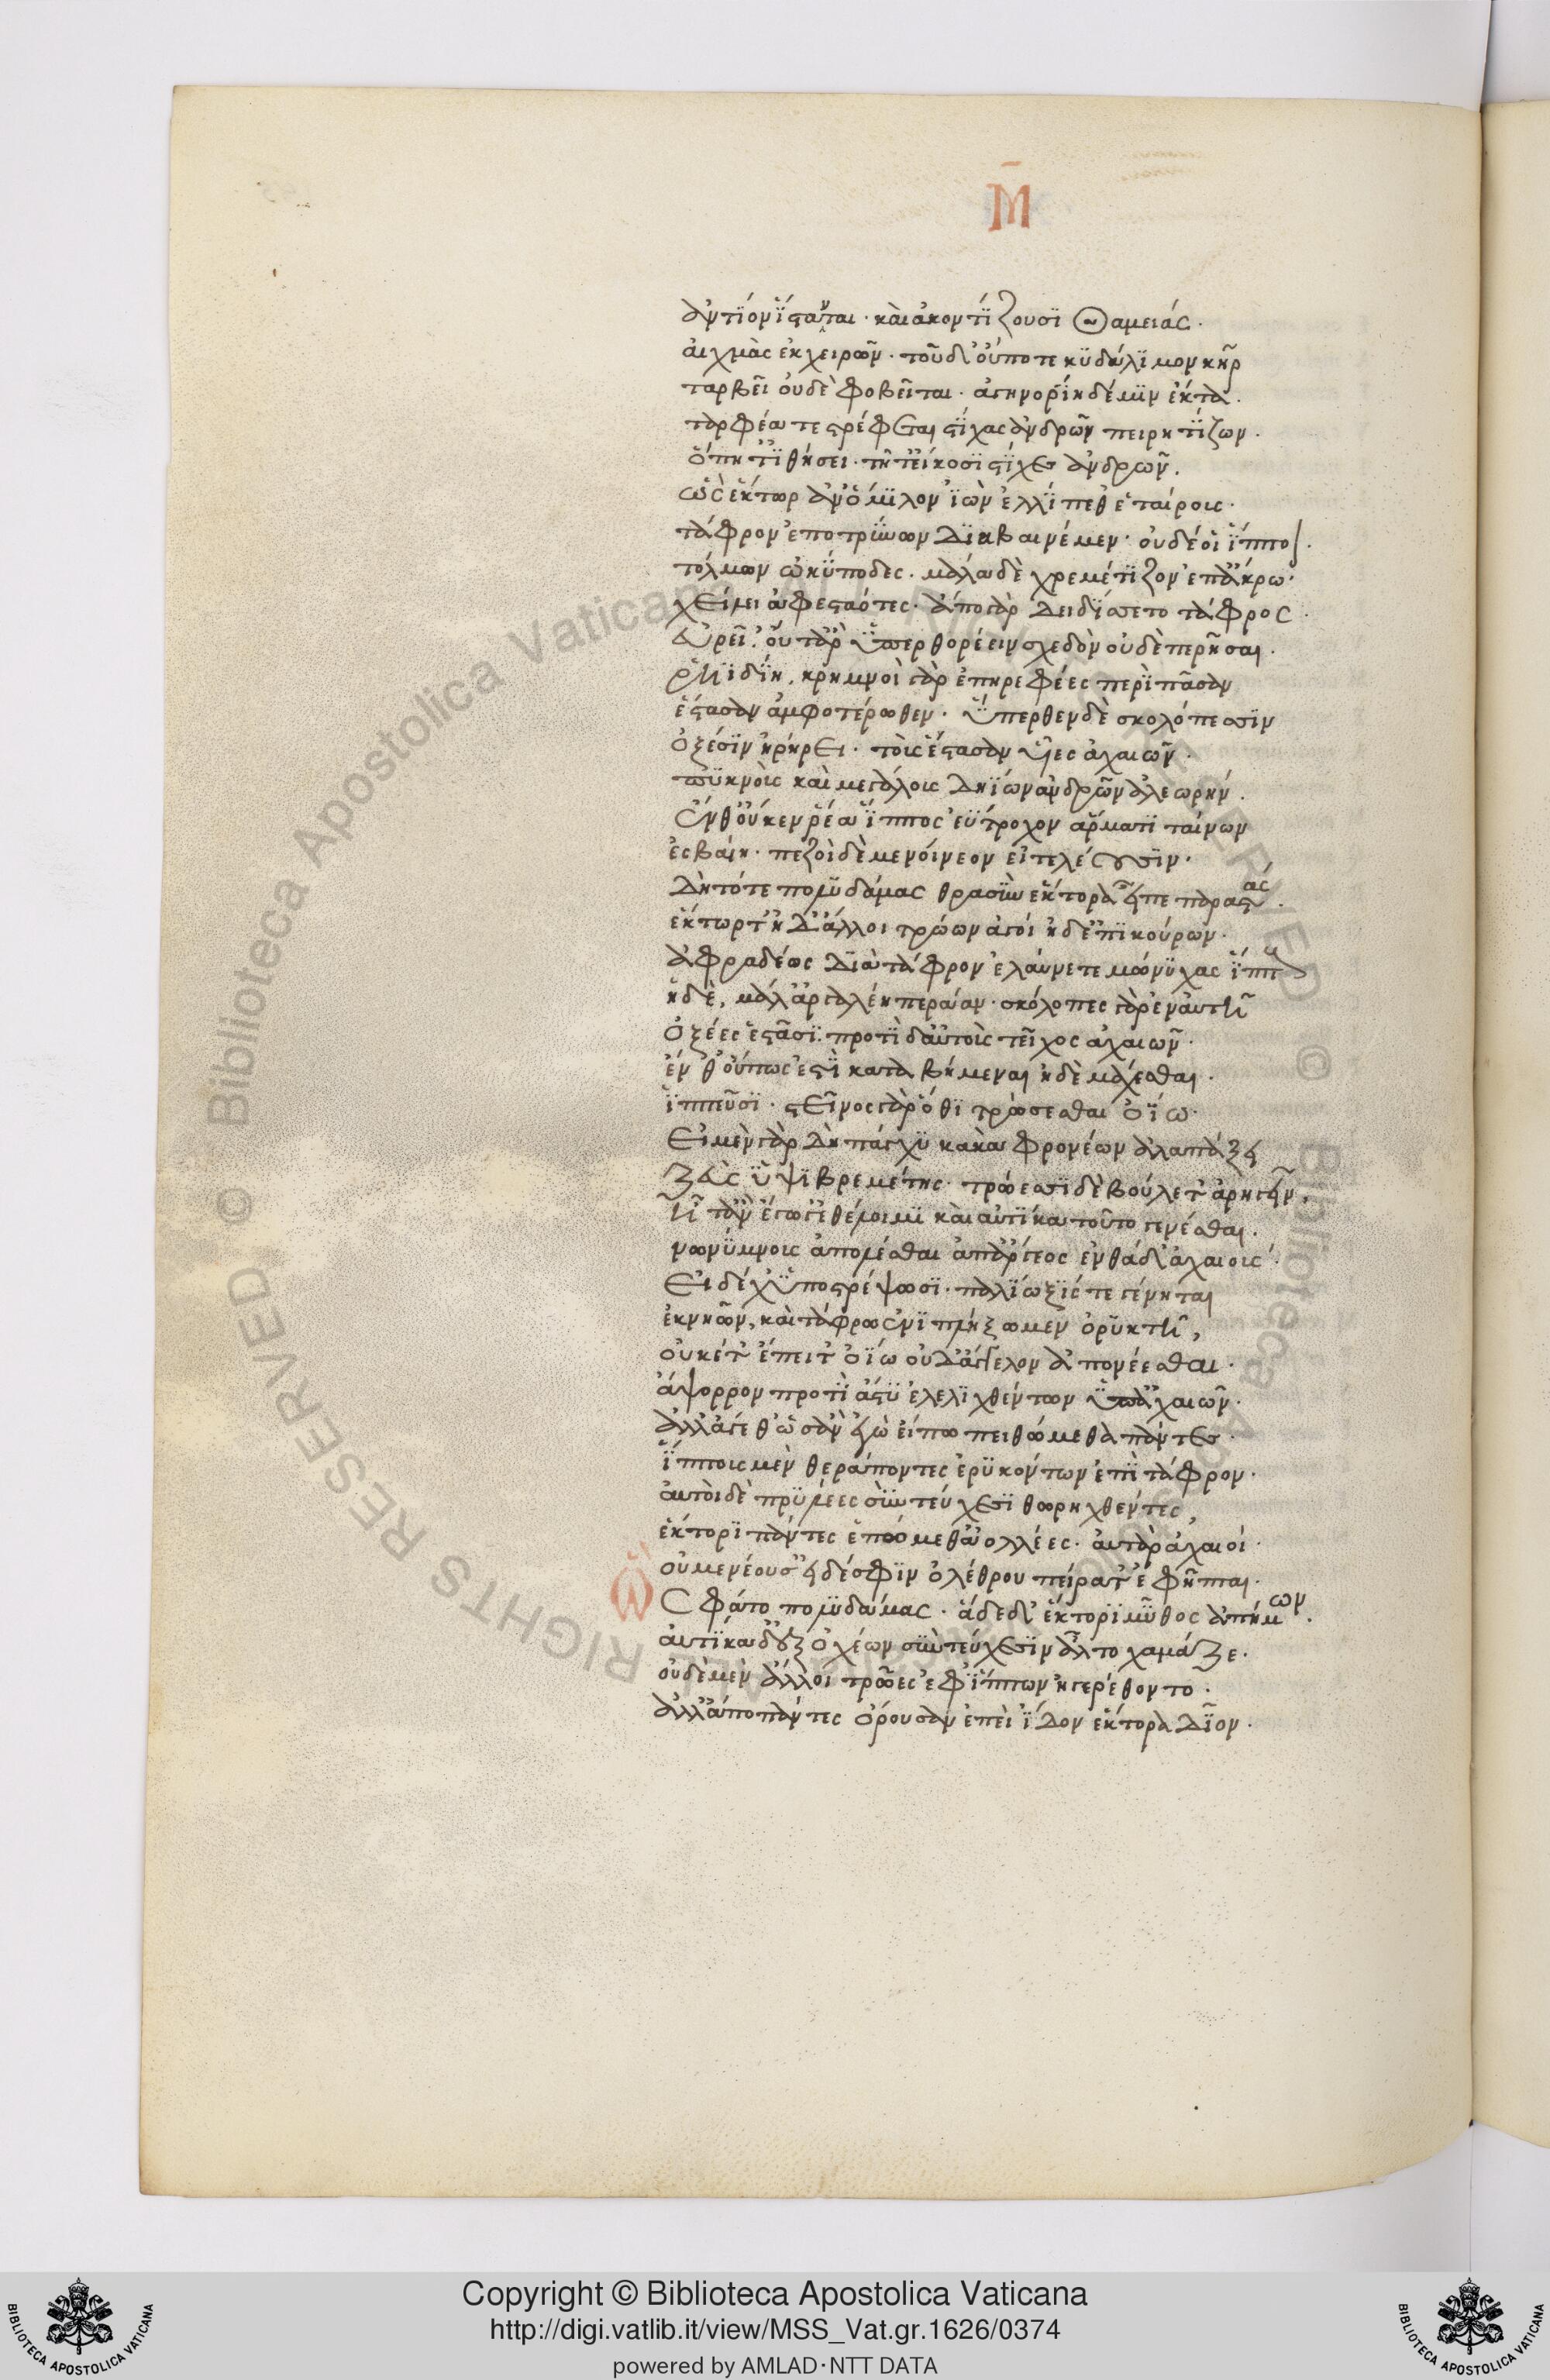 Μ̄
ἀντίον ἵστανται· καὶ ἀκοντίζουσι θαμειάς·
αἰχμὰς ἐκ χειρῶν· τοῦ δ' οὔποτε κυδάλιμον κῆρ
ταρβεῖ οὐδὲ φοβεῖται· ἀγηνορίη δέ μιν ἔκτα·
ταρφέα τε στρέφεται στίχας ἀνδρῶν πειρητίζων·
ὅπη τ' ἰθήσει· τῆ τ' εἴκοσι στίχες ἀνδρῶν.
ὣς ἕκτωρ ἀν' ὅμιλον ἰὼν ἐλλίπεθ' ἑταίροις·
τάφρον ἐποτρύνων διαβαινέμεν· οὐδέ οἱ ἵπποι·
τόλμων ὠκύποδες· μάλα δὲ χρεμέτιζον ἐπ' ἄκρω·
χείλει ἀφεσταότες· ἀπο γὰρ δειδίσσετο τάφρος·
εὐρεῖ'· οὔτ' ἂρ ὑπερθορέειν σχεδὸν οὐδὲ περῆσαι·
ῥηϊδίη, κρημνοὶ γὰρ ἐπηρεφέες περὶ πᾶσαν
ἕστασαν ἀμφοτέρωθεν· ὕπερθεν δὲ σκολόπεσσιν
ὀξέσιν ἠρήρει· τοὺς ἕστασαν υἷες ἀχαιῶν·
πυκνοὶς καὶ μεγάλοις δηίων ἀνδρῶν ἀλεωρήν.
ἔνθ' οὔκεν ῥέα ἵππος εὔτροχον ἅρματι ταίνων
ἐσβαίη· πεζοὶ δὲ μενοίνεον εἰ τελέουσιν·
δὴ τότε πολυδάμας θρασὺν ἕκτορα εἶπε παραστάς·
ἕκτωρ τ' ἠδ' ἄλλοι τρώων ἀγοί ἠδ' ἐπικούρων·
ἀφραδέως διὰ τάφρον ἐλαύνετε μώνυχας ἵππους
ἡ δὲ, μάλ' ἀργαλέη περάαν· σκόλοπες γὰρ ἐν αὐτῆ
ὀξέες ἑστᾶσι· προτὶ δ' αὐτοὶς τεῖχος ἀχαιῶν·
ἔνθ' οὔπως ἐστὶ καταβήμεναι ἠδὲ μάχεσθαι·
ἱππεῦσι· στεῖνος γὰρ ὅθι τρώσεσθαι ὀΐω·
εἰ μὲν γὰρ δὴ πάγχυ κακὰ φρονέων ἀλαπάζει
ζεὺς ὑψιβρεμέτης· τρώεσσι δὲ βούλετ' ἀρήγειν,
ἦ τ' ἂν ἔγωγ' ἐθέλοιμι καὶ αὐτίκα τοῦτο γενέσθαι·
νωνύμνοις ἀπολέσθαι ἀπ' ἄργεος ἐνθάδ' ἀχαιοις·
εἰ δέ χ' ὑποστρέψωσι· παλίωξίς τε γένηται
ἐκ νηῶν, καὶ τάφρω ἐνὶ πλήξωμεν ὀρυκτῆ,
οὐκέτ' ἔπειτ' ὀΐω οὐδ' ἄγγελον ἀπονέεσθαι·
ἄψορρον προτὶ ἄστυ ἐλελιχθέντων ὑπ' ἀχαιῶν·
ἀλλ' ἄγεθ' ὡς ἂν ἐγὼ εἴπω πειθώμεθα πάντες·
ἵπποις μὲν θεράποντες ἐρυκόντων ἐπὶ τάφρον·
αὐτοὶ δὲ πρυλέες σὺν τεύχεσι θωρηχθέντες,
ἕκτορι πάντες ἑπώμεθ' ἀολλέες· αὐτὰρ ἀχαιοί·
οὐ μενέουσ' εἰ δέ σφιν ὀλέθρου πείρατ' ἐφῆπται·
Ὣς φάτο πολυδάμας· ἅδε δ' ἕκτορι μῦθος ἀπήμων·
αὐτίκα δ' ἐξ ὀχέων σὺν τεύχεσιν ἆλτο χαμάζε·
οὐδὲ μὲν ἄλλοι τρῶες ἐφ' ἵππων ἠγερέθοντο·
ἀλλ' ἀπο πάντες ὄρουσαν ἐπεὶ ἴδον ἕκτορα δῖον·
© Biblioteca Apostolica Vaticana ALL RIGHTS RESERVED
© Biblioteca Apostolica Vaticana ALL RIGHTS RESERVED
Copyright © Biblioteca Apostolica Vaticana
http://digi.vatlib.it/view/MSS_Vat.gr.1626/0374
powered by AMLAD·NTT DATA
BIBLIOTECA APOSTOLICA VATICANA
BIBLIOTECA APOSTOLICA VATICANA